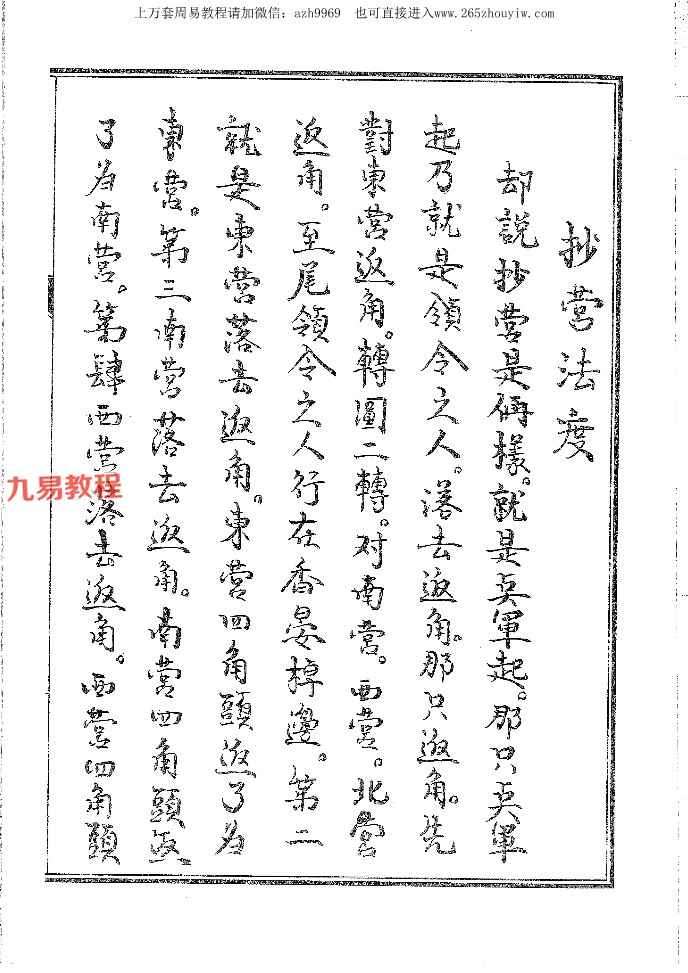 上万套周易教程请加微信：azh9969 也可直接进入www.265zhouyiw.com
抄营法度
却説抄营是俩樣。就是兵軍起。那只兵軍
起乃就是領令之人。落去返角。那只返角。先
對東营返角。轉圓二轉。对南营。西营。北营
返角。至尾領令之人行在香晏棹邊。第二
就是東营落去返角。東营四角頭返了为
東营。第三南营落去返角。南营四角頭返
了为南营。第肆西营落去返角。西营四角頭
九易教程